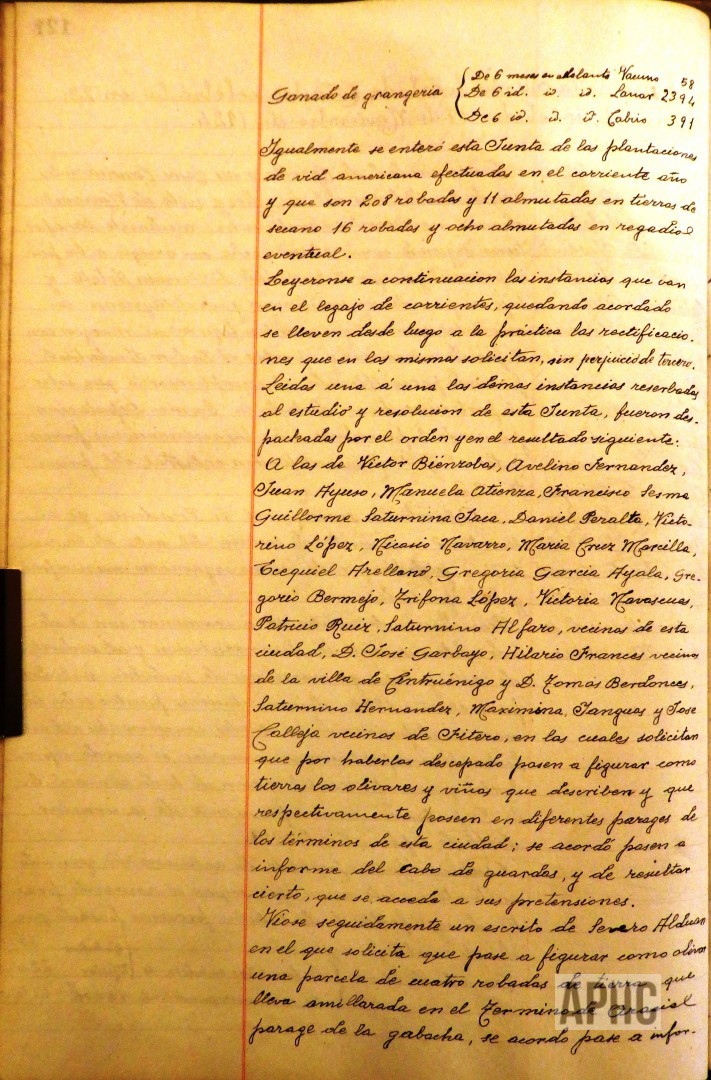 De 6 meses en adelante Vacuno 58
Ganado de grangeria { De 6 id. id. id. Lanar 2394
De 6 id. id. id. Cabrio 391
Igualmente se enteró esta Junta de las plantaciones
de vid americana efectuadas en el corriente año
y que son 208 robadas y 11 almutadas en tierras de
secano 16 robadas y ocho almutadas en regadio
eventual.
Leyeronse a continuacion las instancias que van
en el legajo de corrientes, quedando acordado
se lleven desde luego a la práctica las rectificacio-
nes que en las mismas solicitan, sin perjuicio de tercero.
Leidas una á una las demas instancias reserbadas
al estudio y resolucion de esta Junta, fueron des-
pachadas por el orden y en el resultado siguiente:
A las de Victor Biénzobas, Avelino Fernandez,
Juan Ayuso, Manuela Atienza, Francisco Sesma
Guillorme Saturnina Jaca, Daniel Peralta, Victo-
rino López, Nicasio Navarro, Maria Cruz Marcilla,
Ecequiel Arellano, Gregoria Garcia Ayala, Gre-
gorio Bermejo, Trifona López, Victoria Navascues,
Patricio Ruiz, Saturnino Alfaro, vecinos de esta
ciudad, D. José Garbayo, Hilario Frances vecinos
de la villa de Cintruénigo y D. Tomás Berdonces,
Saturnino Hernandez, Maximina Yanguas y Jose
Calleja vecinos de Fitero, en las cuales solicitan
que por haberlas descepado pasen a figurar como
tierras los olivares y viñas que describen y que
respectivamente poseen en diferentes parages de
los términos de esta ciudad; se acordó pasen a
informe del cabo de guardas, y de resultar
cierto, que se acceda a sus pretensiones.
Viose seguidamente un escrito de Severo Alduan
en el que solicita que pase a figurar como olivar
una parcela de cuatro robadas de tierra que
lleva amillarada en el Termino de Araciel
parage de la gabacha, se acordo pase a infor-
APHC